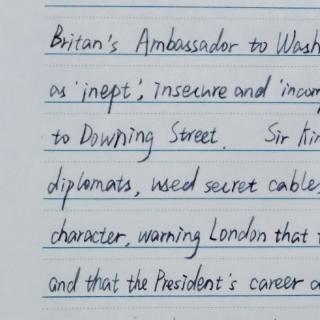 Britan's Ambassador to Wash
as 'inept', insecure and 'incom
to Downing Street. Sir Kim
diplomats, used secret cables
character, warning London that t
and that the President's career